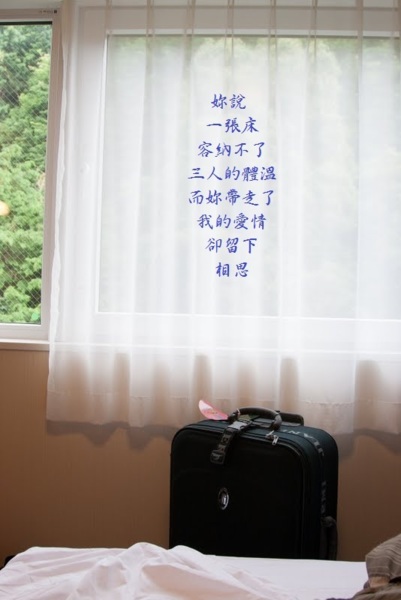 妳說
一張床
容納不了
三人的體溫
而妳帶走了
我的愛情
卻留下
相思